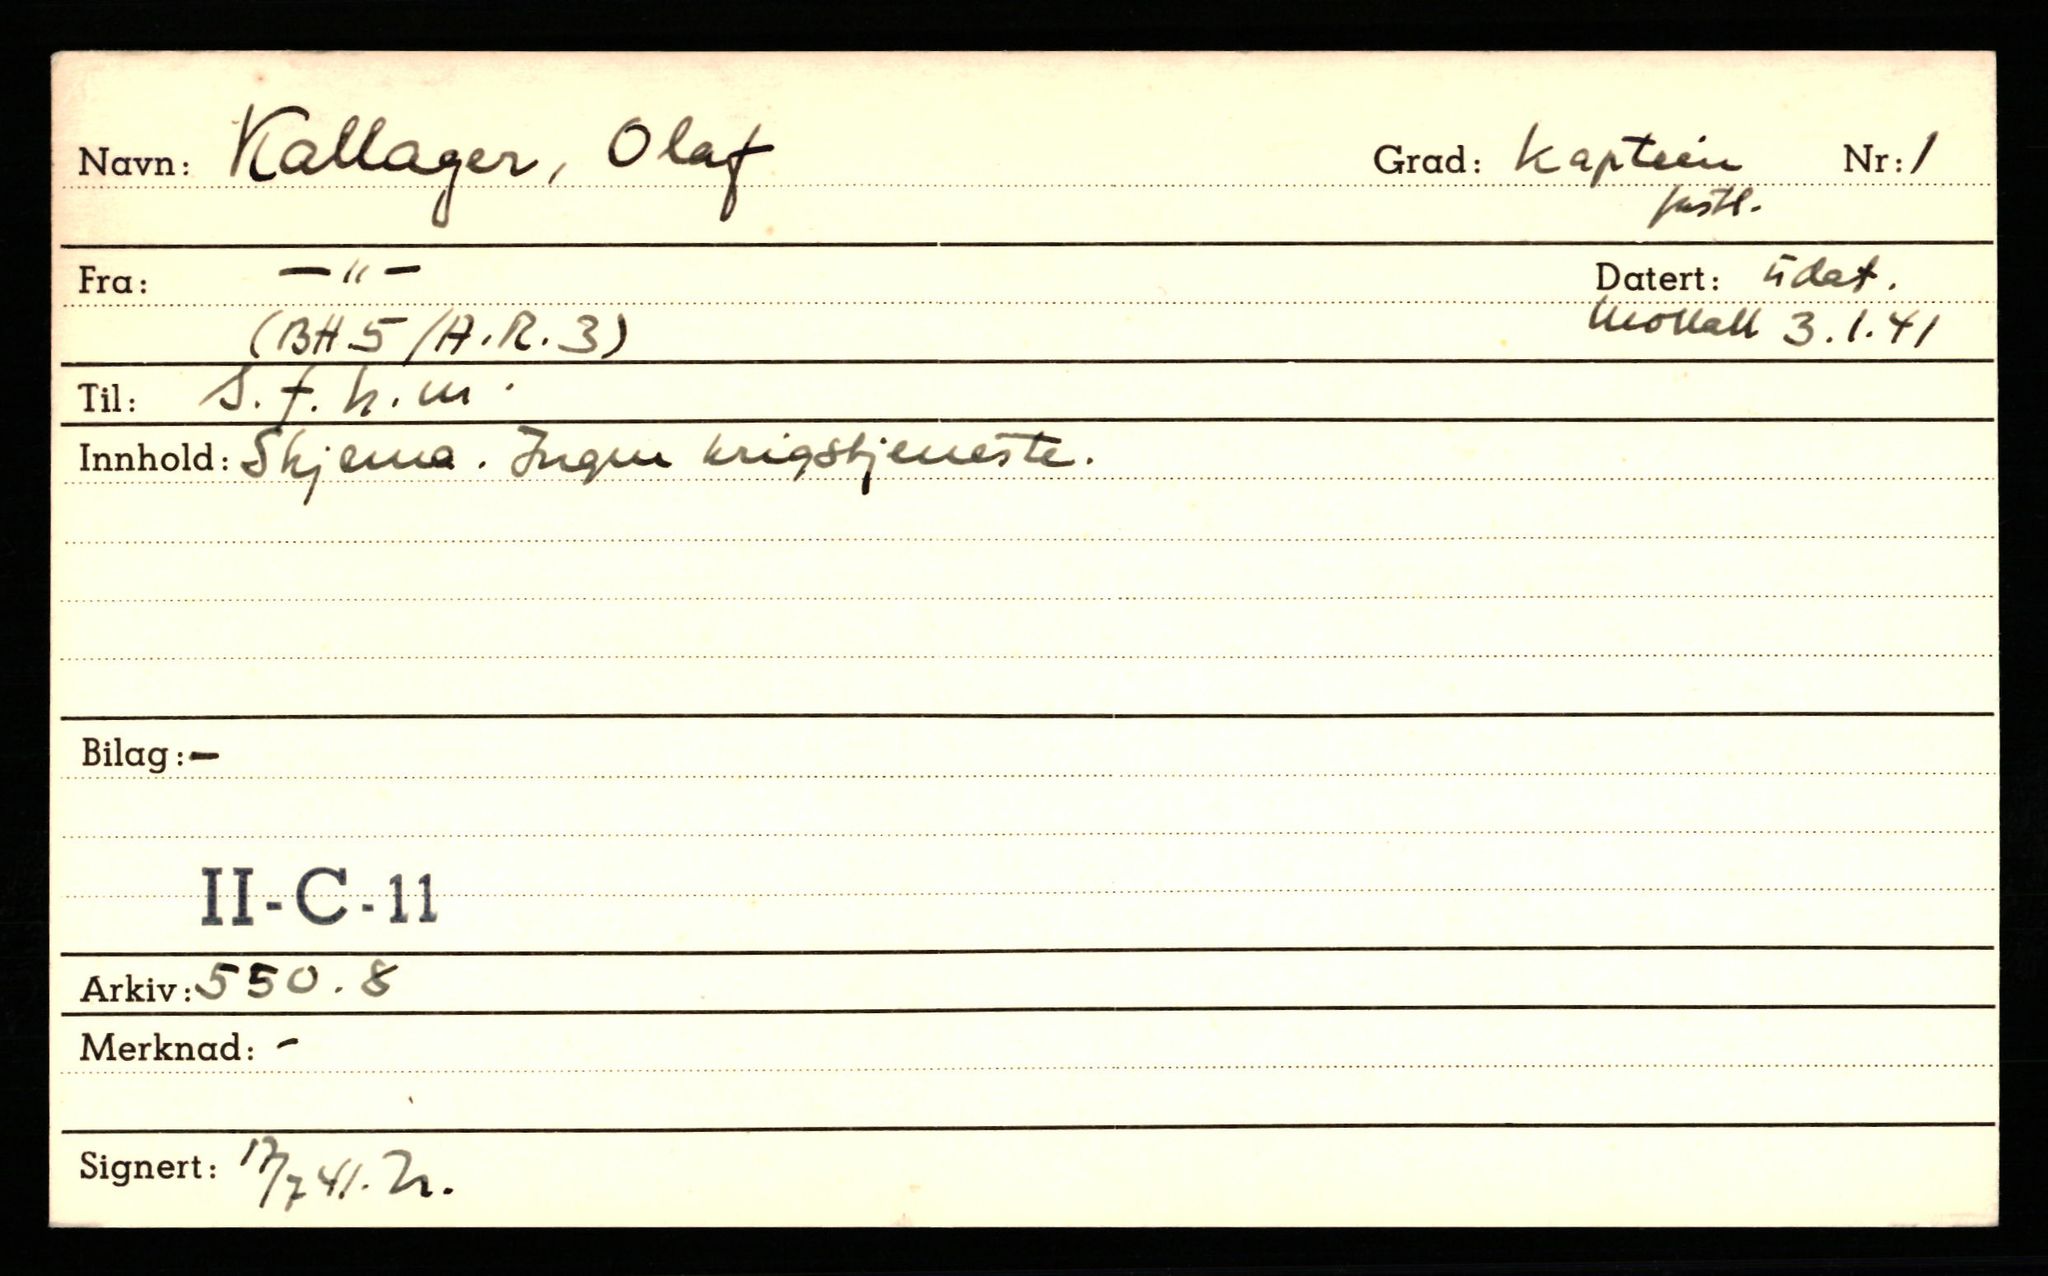 Navn: Kallager, Olaf Grad: Kaptein Nr: 1
Fra: —"— Datert: udat.
(BH 5/A.R.3) Mottatt 3.1.41
Til: S.f.h.m.
Innhold: Skjema. Ingen krigstjeneste.
Bilag: -
II-C-11
Arkiv: 550.8
Merknad: -
Signert: 17/7 41. H.